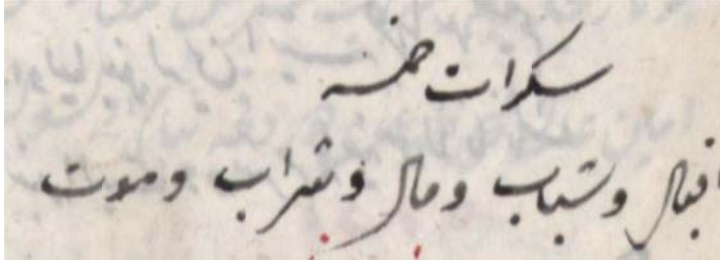 سكرات خمسه
اقبال وشباب ومال وشراب وموت